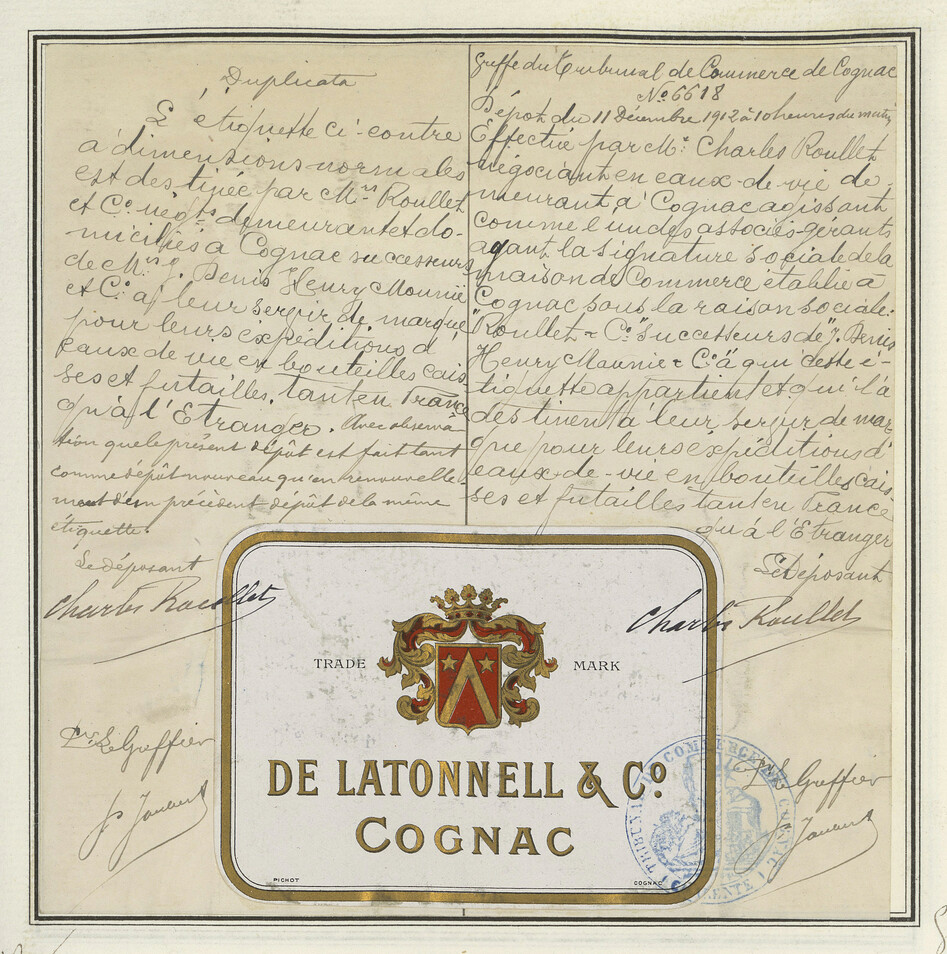 Duplicata
L'étiquette ci-contre
à dimensions normales
est destinée par Mrs Roullet
et Co négts demeurant et do-
miciliés à Cognac successeurs
de Mrs J. Denis Henry Mounié
et Co à leur servir de marque
pour leurs expéditions d'
eaux de vie en bouteilles cais-
ses et futailles, tant en France
qu'à l'Etranger. Avec observa-
tion que le présent dépôt est fait tant
comme dépôt nouveau qu'en renouvelle-
ment d'un précédent dépôt de la même
étiquette.
Le déposant
Charles Roullet
Le Greffier
Greffe du Tribunal de Commerce de Cognac
No 6618
Dépôt du 11 Décembre 1912 à 10 heures du matin
Effectué par Mr Charles Roullet
négociant en eaux-de-vie de-
meurant à Cognac agissant
comme l'un des associés-gérants
ayant la signature sociale de la
maison de Commerce établie à
Cognac sous la raison sociale:
"Roullet & Co Successeurs de J. Denis
Henry Mounié & Co" à qui cette é-
tiquette appartient et qui l'a
destinent à leur servir de mar-
que pour leurs expéditions d'
eaux-de-vie en bouteilles cais-
ses et futailles tant en France
qu'à l'Etranger
Le Déposant
Charles Roullet
Le Greffier
TRADE MARK
DE LATONNELL & Co
COGNAC
PICHOT COGNAC
TRIBUNAL DE COMMERCE DE COGNAC